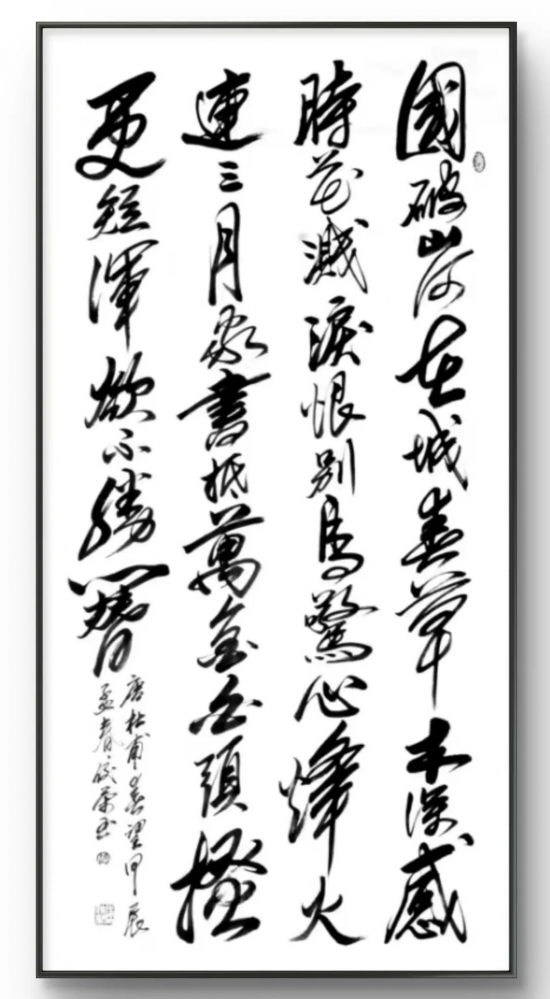 國破山河在城春草木深感
時花濺淚恨別鳥驚心烽火
連三月家書抵萬金白頭搔
更短渾欲不勝簪
唐杜甫春望甲辰
孟春